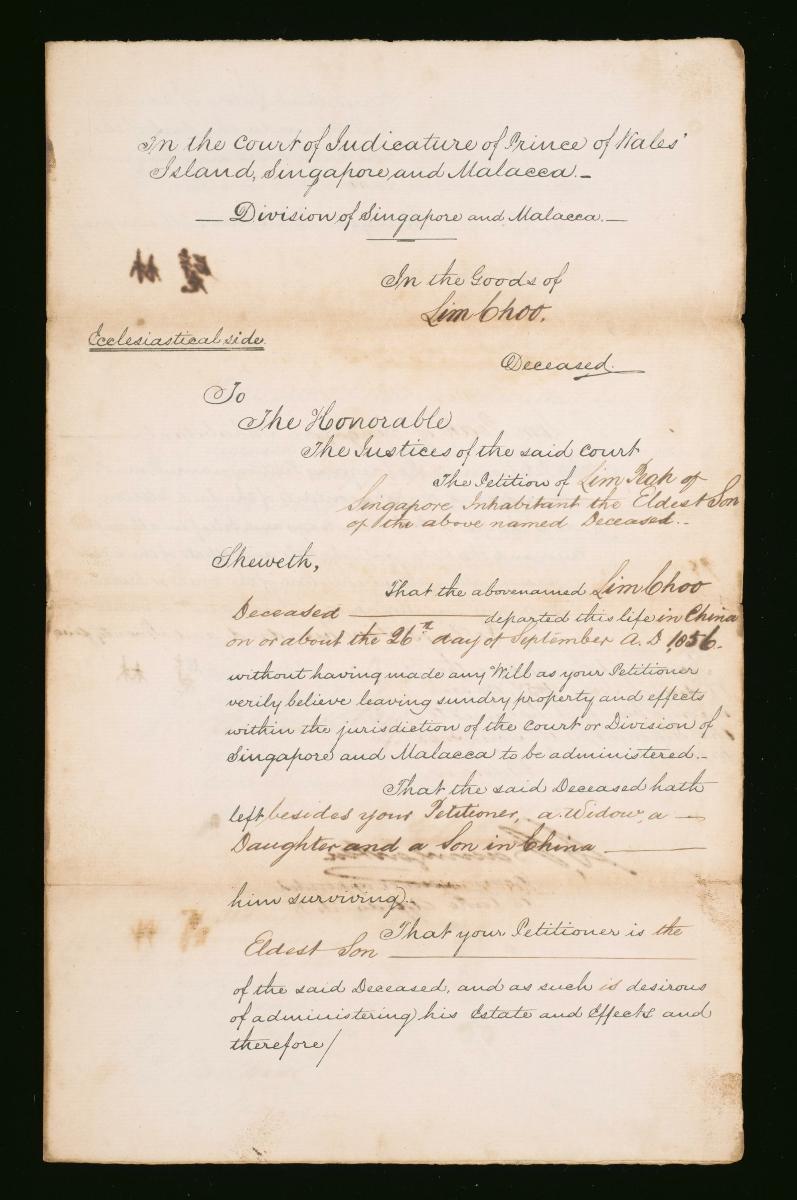 In the Court of Judicature of Prince of Wales'
Island, Singapore and Malacca.–
— Division of Singapore and Malacca.—
In the Goods of
Lim Choo.
Ecclesiastical side.
Deceased.
To
The Honorable
The Justices of the said Court
The Petition of Lim Peah of
Singapore Inhabitant the Eldest Son
of the above named Deceased.–
Sheweth,
That the abovenamed Lim Choo
Deceased ——— departed this life in China
on or about the 26th day of September A.D 1856.
without having made any Will as your Petitioner
verily believe leaving sundry property and effects
within the jurisdiction of the Court or Division of
Singapore and Malacca to be administered.–
That the said Deceased hath
left besides your Petitioner, a Widow, a —
Daughter and a Son in China ———
him surviving.–
That your Petitioner is the
Eldest Son ———
of the said Deceased, and as such is desirous
of administering his Estate and Effects and
therefore/